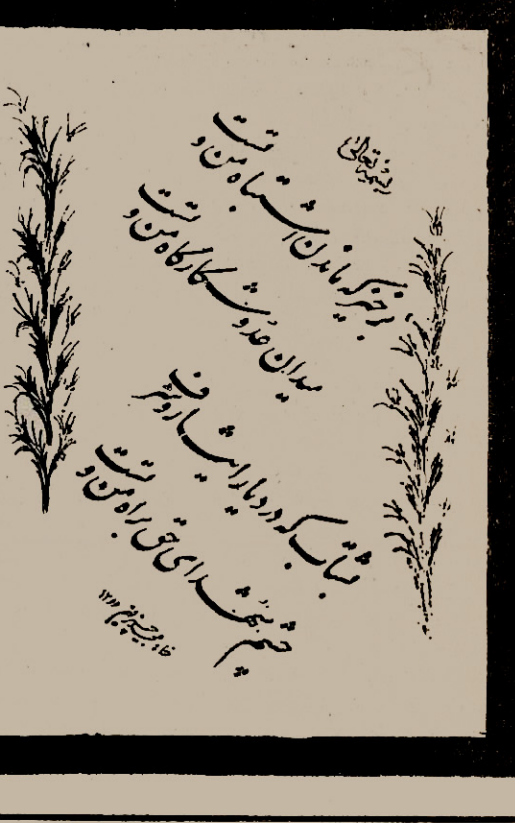 بسمه تعالی
برخیز که ماندن اشتباه من و تست
میدان عدو شکارگاه من و تست
بشتاب که در دیار ایثار و شرف
چشم شهدای حق براه من و تست